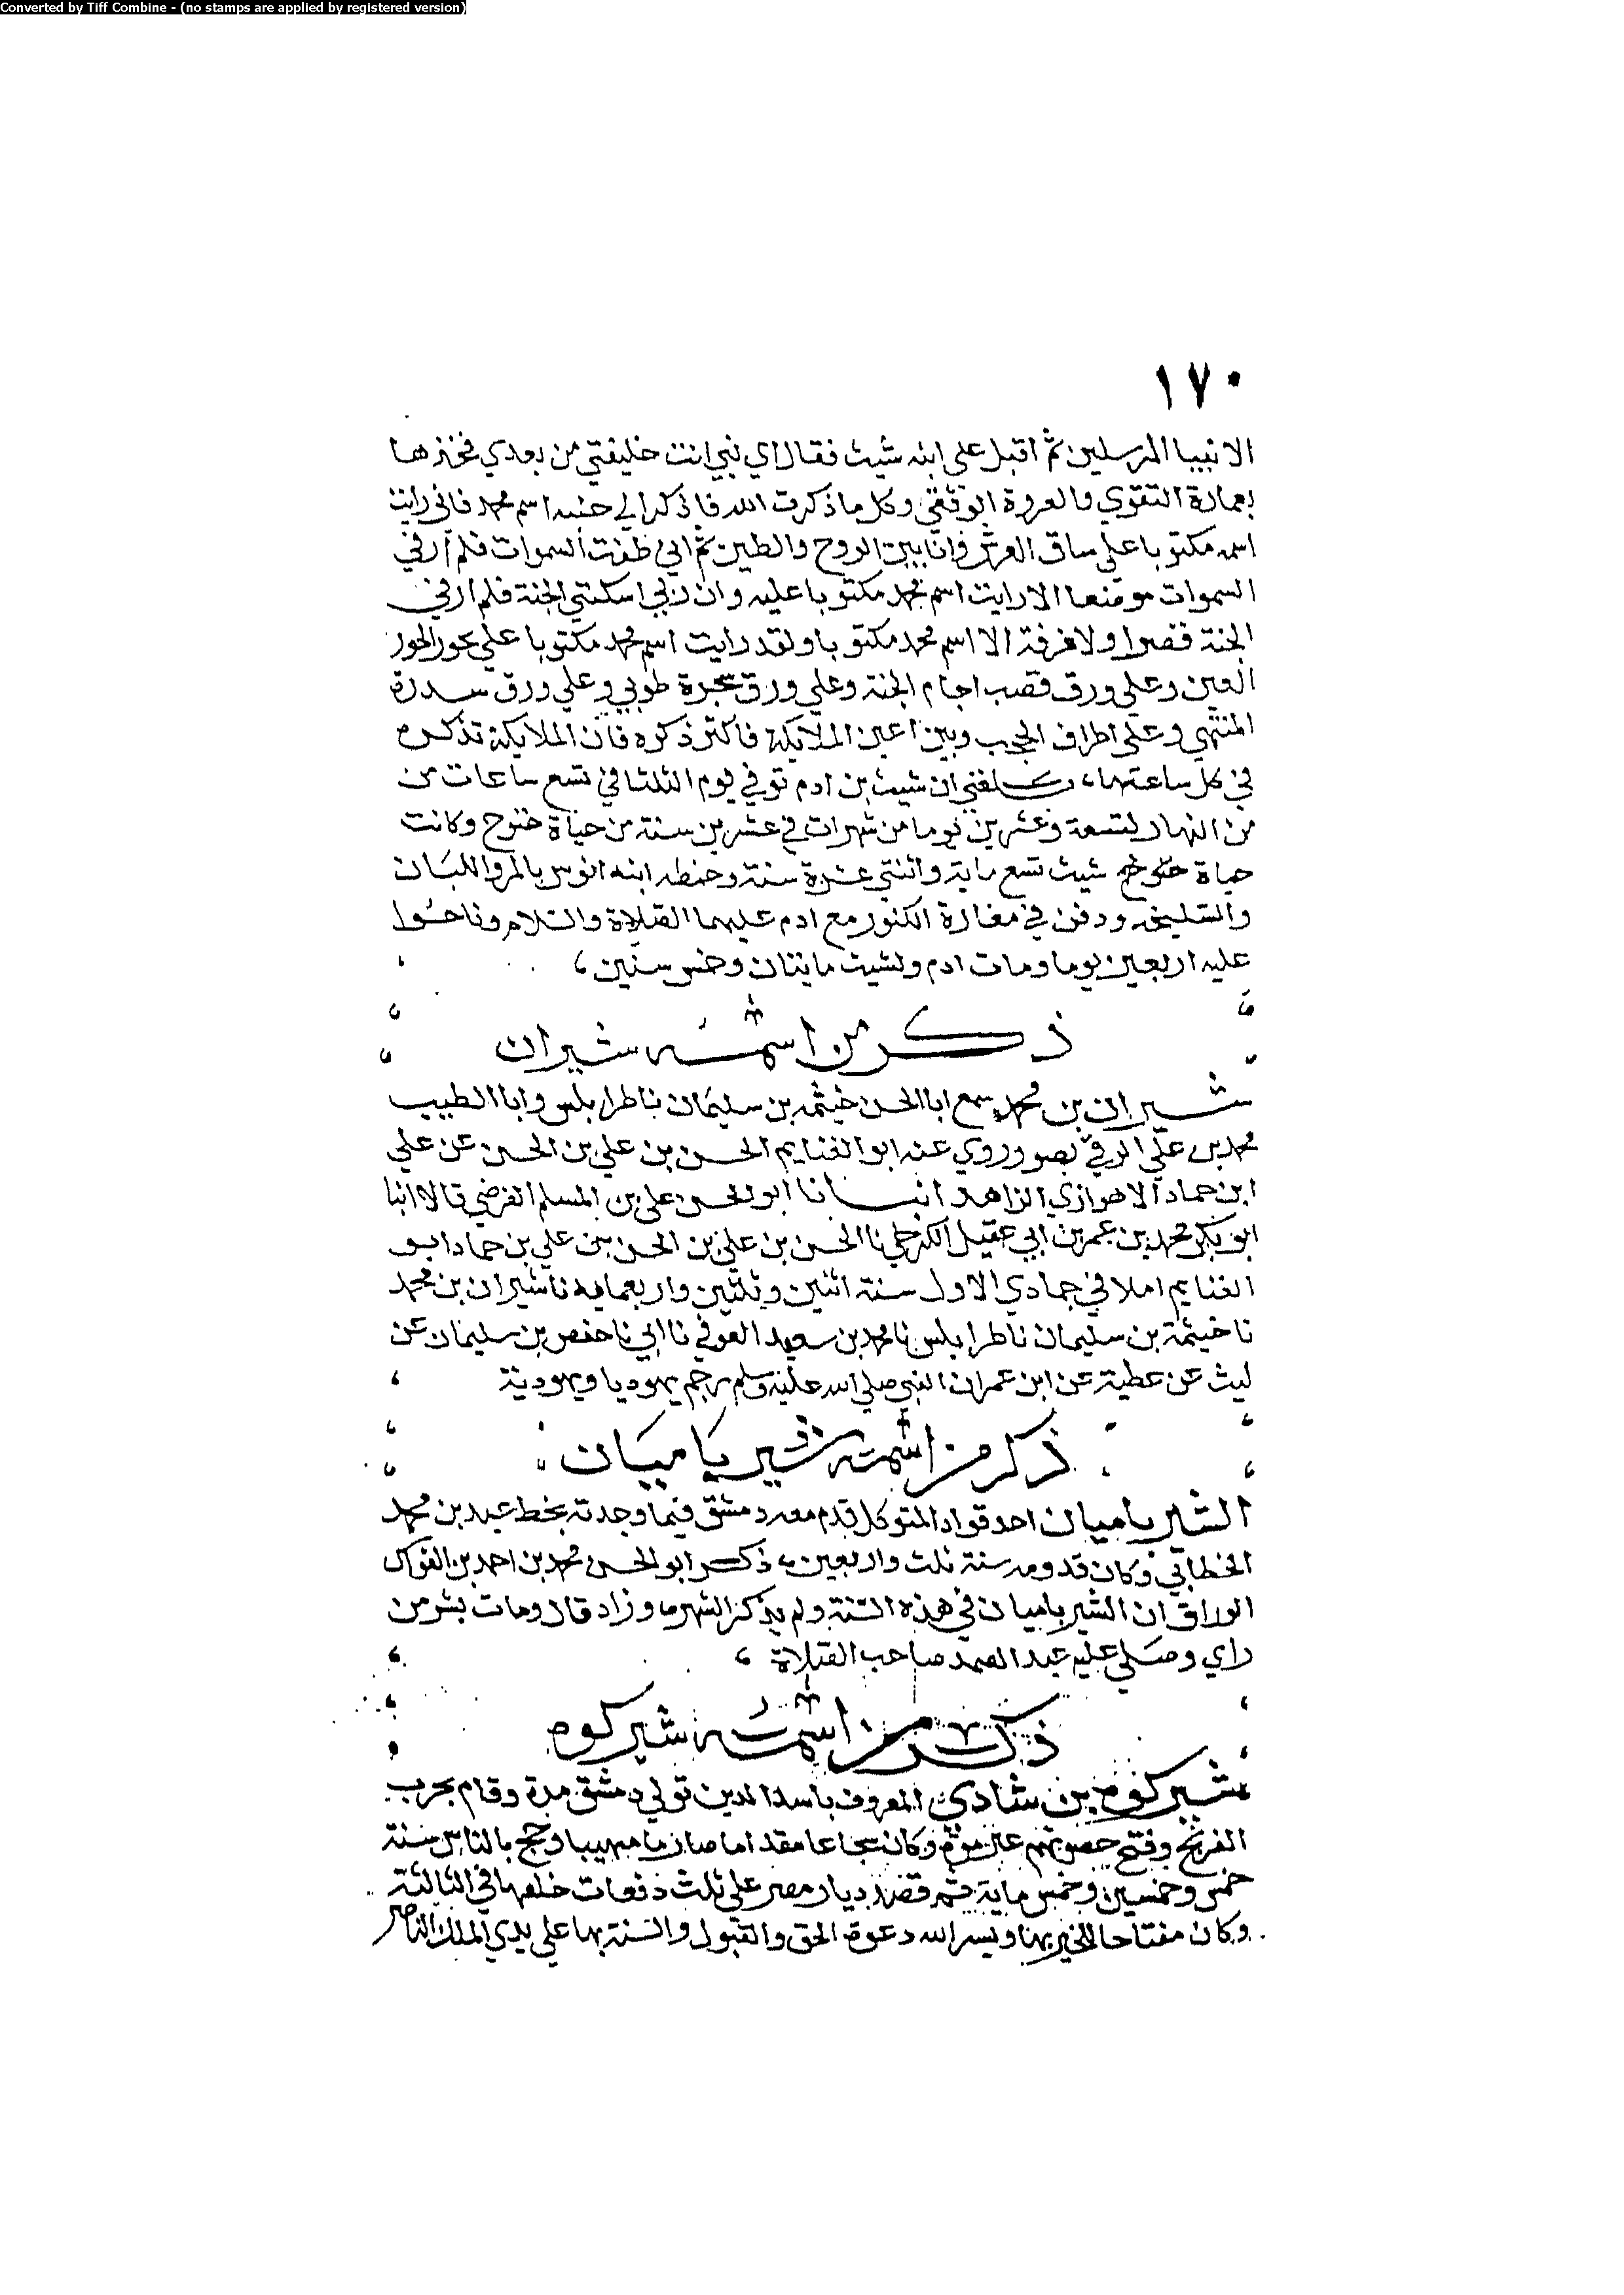 Converted by Tiff Combine - (no stamps are applied by registered version)
١٧٠
الانبيا المرسلين ثم اقبل علي ابنه شيث فقال اي نبي انت خليفتي من بعدي فخذها
بعمارة التقوي والعروة الوثقي وكل ما ذكرت الله فاذكر الي جنبه اسم محمد فاني رايت
اسمه مكتوبا علي ساق العرش وانا بين الروح والطين ثم اني طفت السموات فلم أر في
السموات موضعا الا رايت اسم محمد مكتوبا عليه وان ربي اسكنني الجنة فلم أر في
الجنة قصرا ولا غرفة الا اسم محمد مكتوبا ولقد رايت اسم محمد مكتوبا علي نحور الحور
العين وعلي ورق قصب اجام الجنة وعلي ورق شجرة طوبي وعلي ورق سدرة
المنتهي وعلي اطراف الحجب وبين اعين الملايكة فاكثر ذكره فان الملايكة تذكره
في كل ساعتها، بلغني ان شيث بن ادم توفي يوم الثلثا في تسع ساعات من
من النهار لتسعة وعشرين يوما من شهرات في عشرين سنة من حياة خنوح وكانت
حياة شيث تسع ماية واثنتي عشرة سنة وحنطه ابنه انوس بالمر واللبان
والسليخه ودفن في مغارة الكنوز مع ادم عليهما الصلاة والسلام وناحوا
عليه اربعين يوما ومات ادم ولشيث مايتان وخمس سنين ،
ذكر من اسمه شيران
شيران بن محمد سمع ابا الحسن خيثمه بن سليمان باطرابلس وابا الطيب
محمد بن علي الرقي بصور وروي عنه ابو الغنايم الحسن بن علي بن الحسن عن علي
ابن حماد الاهوازي الزاهد انبانا ابو الحسن علي بن المسلم الفرضي قالا انبا
ابو بكر محمد بن عمر بن ابي عقيل الكرجي نا الحسن بن علي بن الحسن بن علي بن حماد ابو
الغنايم املا في جمادي الاول سنة اثنين وثلثين واربعمايه نا شيران بن محمد
نا خيثمة بن سليمان باطرابلس نا محمد بن سعيد العوفي نا ابي نا حفص بن سليمان عن
ليث عن عطية عن ابن عمر ان النبي صلي الله عليه وسلم رجم يهوديا ويهودية
ذكر من اسمه شير باميان
الشير باميان احد قواد المتوكل قدم معه دمشق فيما وجدته بخط عبد بن محمد
الخطابي وكان قدومه سنة ثلث واربعين، ذكر ابو الحسن محمد بن احمد بن القواس
الوراق ان الشير باميان في هذه السنة ولم يذكر الشهر وزاد قال ومات بسر من
راي وصلي عليه عبد الصمد صاحب الصلاة ،
ذكر من اسمه شيركوه
شيركوه بن شادي المعروف باسد الدين تولي دمشق مدة وقام بحرب
الفرنج وفتح حصونهم غير مرة وكان شجاعا مقداما صارما مهيبا وحج بالناس سنة
خمس وخمسين وخمس ماية ثم قصد ديار مصر علي ثلث دفعات خلصها في الثالثة
وكان مفتاحا للخير بها ويسر الله دعوة الحق والقبول والسنة بها علي يدي الملك الناصر